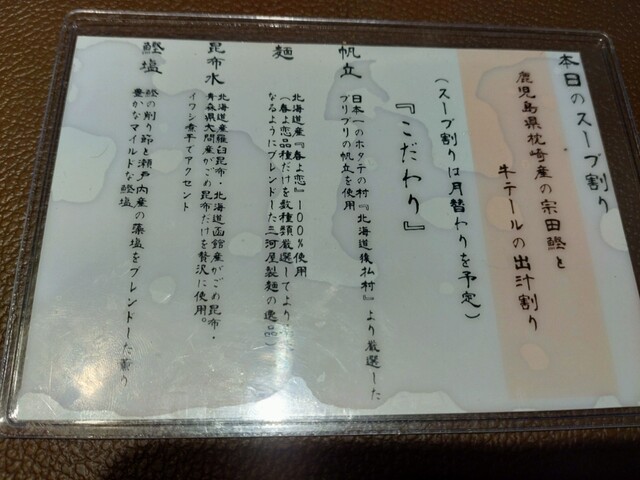 本日のスープ割り
鹿児島県枕崎産の宗田鰹と
牛テールの出汁割り
(スープ割りは月替わりを予定)
『こだわり』
帆立
日本一のホタテの村『北海道猿払村』より厳選した
プリプリの帆立を使用
麺
北海道産『春よ恋』100%使用
(春よ恋品種だけを数種類厳選してより、
なるようにブレンドした三河屋製麺の逸品)
昆布水
北海道産羅臼昆布・北海道函館産がごめ昆布・
青森県大間産がごめ昆布だけを贅沢に使用。
イワシ煮干でアクセント
鰹塩
鰹の削り節と瀬戸内産の藻塩をブレンドした薫り
豊かなマイルドな鰹塩